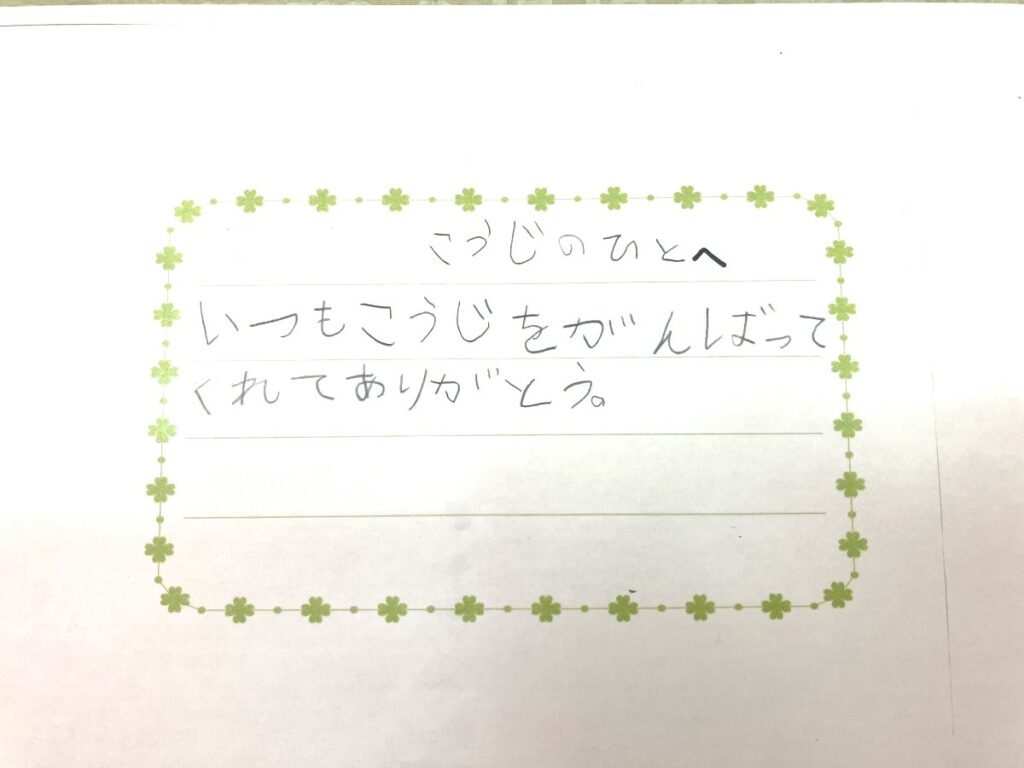 こうじのひとへ
いつもこうじをがんばって
くれてありがとう。